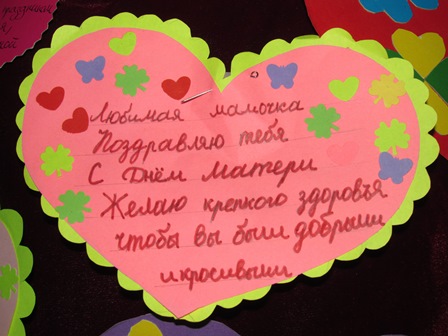 Любимая мамочка
Поздравляю тебя
С Днём Матери
Желаю крепкого здоровья
чтобы вы были добрыми
и красивыми